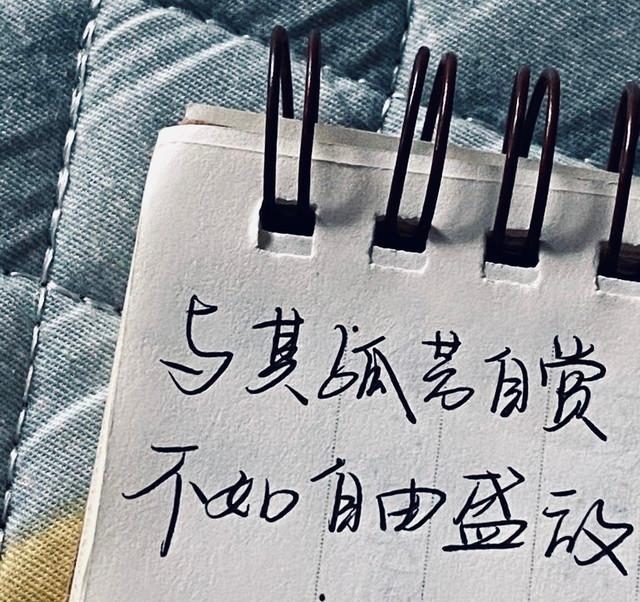 与其孤芳自赏
不如自由盛放